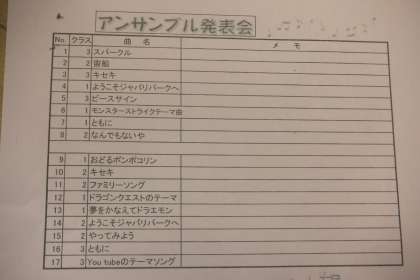 アンサンブル発表会
No. クラス 曲名 メモ
1 3 スパークル
2 2 宙船
3 3 キセキ
4 1 ようこそジャパリパークへ
5 3 ピースサイン
6 1 モンスターストライクテーマ曲
7 1 ともに
8 2 なんでもないや
9 1 おどるポンポコリン
10 2 キセキ
11 2 ファミリーソング
12 1 ドラゴンクエストのテーマ
13 1 夢をかなえてドラエモン
14 2 ようこそジャパリパークへ
15 2 やってみよう
16 3 ともに
17 3 You tubeのテーマソング